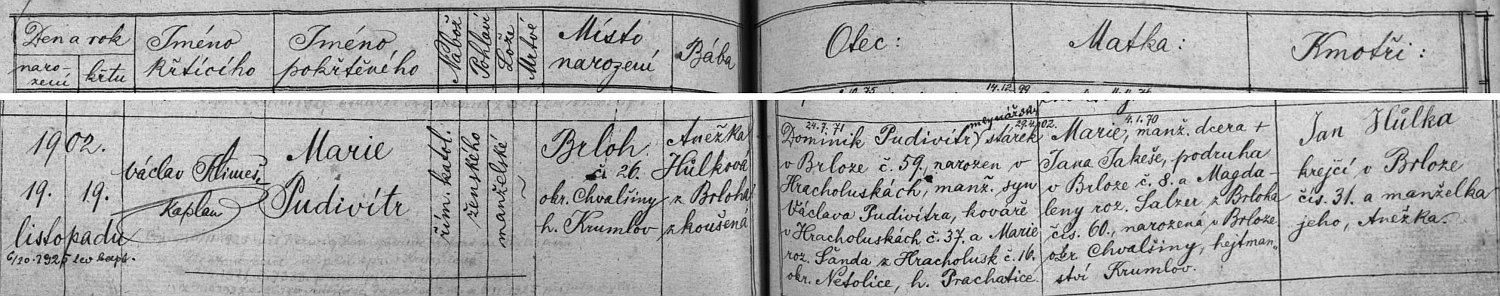 Den a rok
naro-
zení
křtu
Jméno
křtícího
Jméno
pokřtěného
Nábož.
Pohlaví
Lože
Mrtvé
Místo
narození
Bába
Otec:
Matka:
Kmotři:
14.12.99
1902.
19. 19.
listopadu
Václav
Kaplan
Marie
Pudivítr
řím. katol.
ženského
manželské
Brloh
č. 26.
okr. Chvalšiny
h. Krumlov
Anežka
Hůlková
z Brloha
zkoušená
24.7.71
mlynářský
Dominik Pudivítr, stárek
v Brloze č. 59, narozen v
Hracholuskách, manž. syn
Václava Pudivítra, kováře
v Hracholuskách č. 37. a Marie
roz. Šanda z Hracholusk č. 16.
okr. Netolice, h. Prachatice.
4.1.70
Marie, manž. dcera +
Jana Jakeše, podruha
v Brloze č. 8. a Magda-
leny roz. Salzer z Brloha
čís. 60., narozená v Brloze
okr. Chvalšiny, hejtman-
ství Krumlov.
Jan Hůlka
krejčí v Brloze
čís. 31. a manželka
jeho, Anežka.